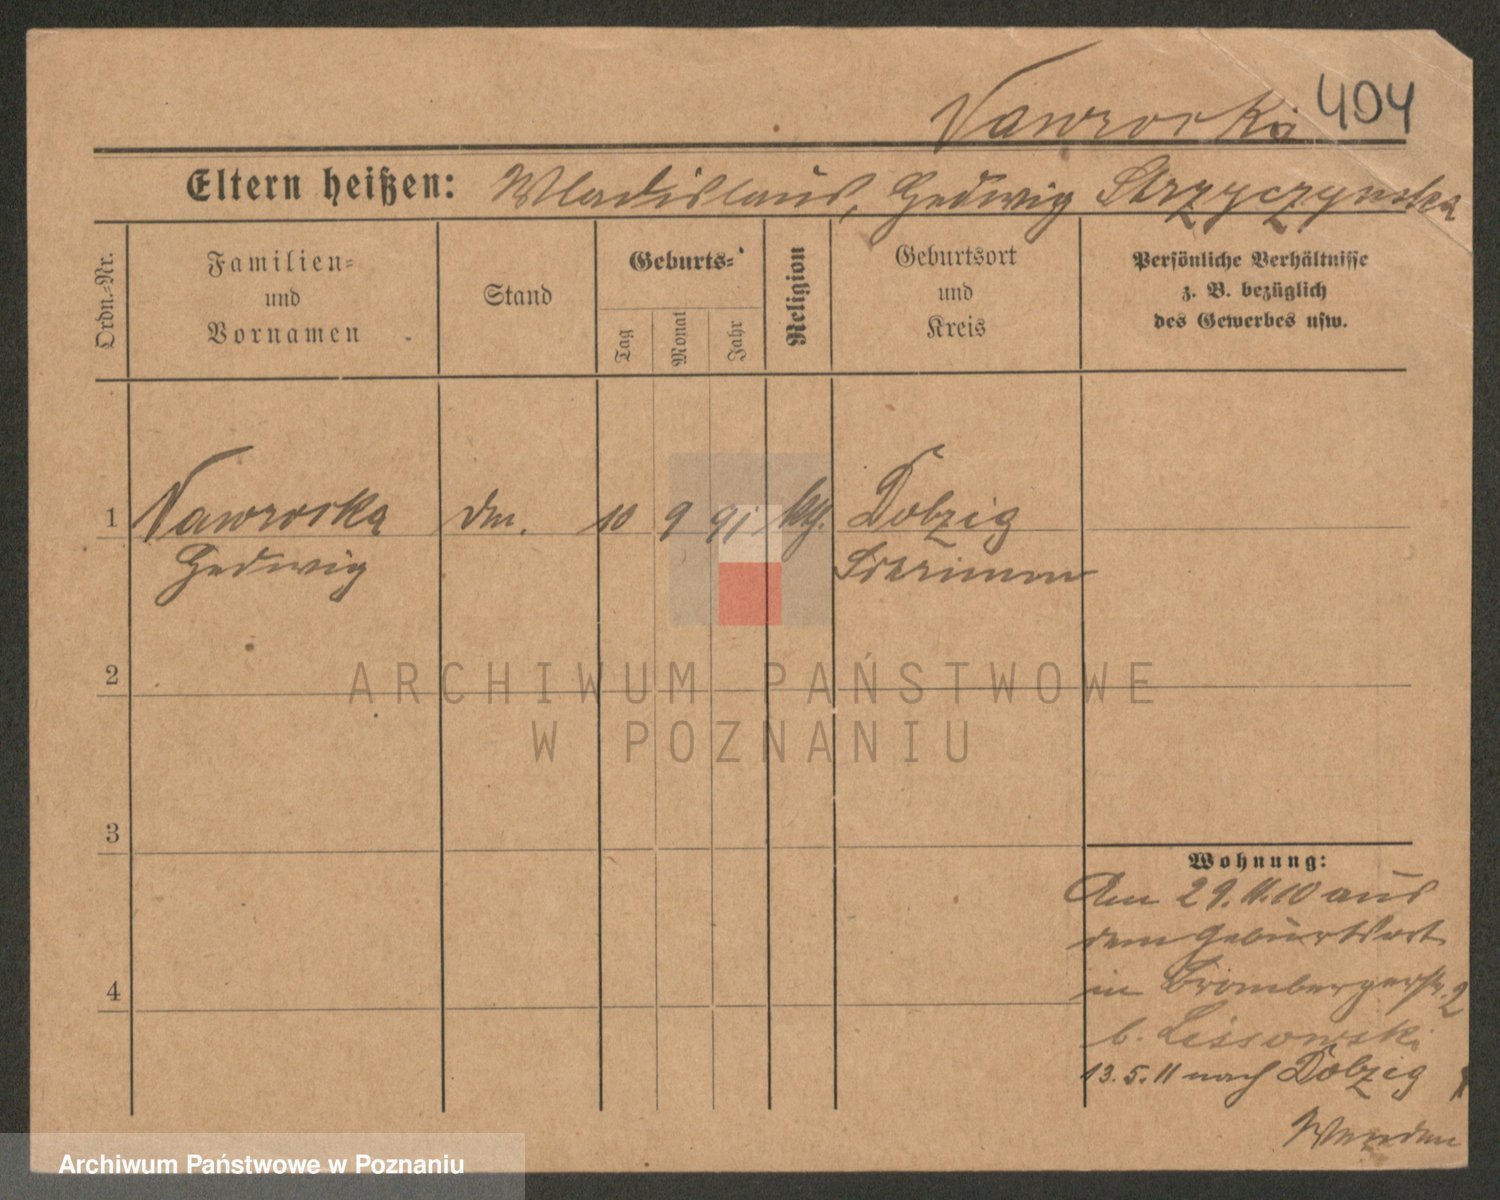 Nawrocka 404
Eltern heißen: Wladislaus, Hedwig Strzyczynska
Ordn.-Nr.
Familien-
und
Vornamen
Stand
Geburts-
Tag
Monat
Jahr
Religion
Geburtsort
und
Kreis
Persönliche Verhältnisse
z. B. bezüglich
des Gewerbes usw.
1 Nawrocka dm. 10 9 91 kth. Dolzig
Hedwig Schrimm
2
3
4
Wohnung:
Am 29.11.10 aus
dem Geburtsort
in Brombergerstr. 2
b. Lissowski
13.5.11 nach Dolzig
Wenden
ARCHIWUM PAŃSTWOWE
W POZNANIU
Archiwum Państwowe w Poznaniu